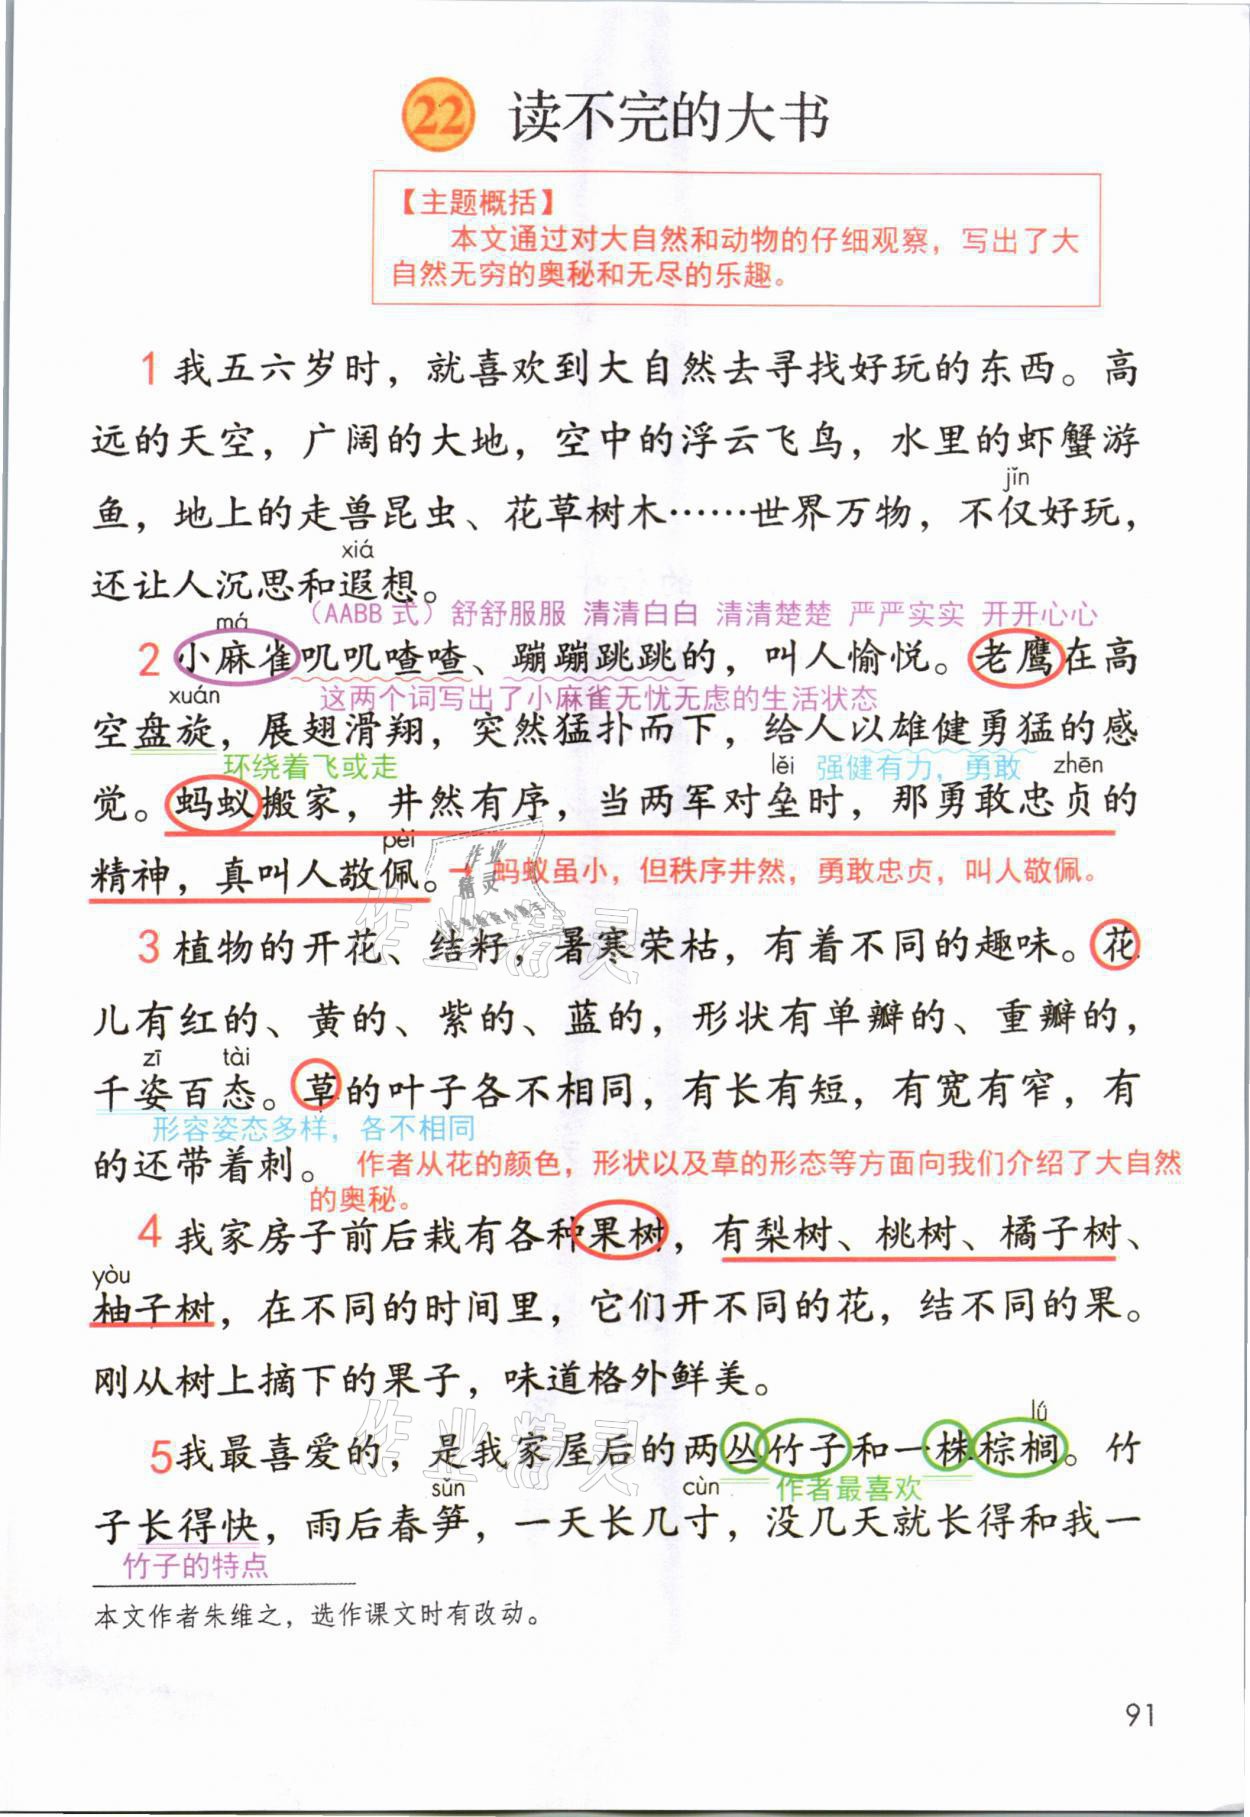 22 读不完的大书
【主题概括】
本文通过对大自然和动物的仔细观察，写出了大
自然无穷的奥秘和无尽的乐趣。
1 我五六岁时，就喜欢到大自然去寻找好玩的东西。高
远的天空，广阔的大地，空中的浮云飞鸟，水里的虾蟹游
jǐn
鱼，地上的走兽昆虫、花草树木……世界万物，不仅好玩，
xiá
还让人沉思和遐想。
（AABB 式）舒舒服服 清清白白 清清楚楚 严严实实 开开心心
má
2 小麻雀叽叽喳喳、蹦蹦跳跳的，叫人愉悦。老鹰在高
xuán 这两个词写出了小麻雀无忧无虑的生活状态
空盘旋，展翅滑翔，突然猛扑而下，给人以雄健勇猛的感
环绕着飞或走 lěi 强健有力，勇敢 zhēn
觉。蚂蚁搬家，井然有序，当两军对垒时，那勇敢忠贞的
pèi
精神，真叫人敬佩。→ 蚂蚁虽小，但秩序井然，勇敢忠贞，叫人敬佩。
3 植物的开花、结籽，暑寒荣枯，有着不同的趣味。花
儿有红的、黄的、紫的、蓝的，形状有单瓣的、重瓣的，
zī tài
千姿百态。草的叶子各不相同，有长有短，有宽有窄，有
形容姿态多样，各不相同
的还带着刺。 作者从花的颜色，形状以及草的形态等方面向我们介绍了大自然
的奥秘。
4 我家房子前后栽有各种果树，有梨树、桃树、橘子树、
yòu
柚子树，在不同的时间里，它们开不同的花，结不同的果。
刚从树上摘下的果子，味道格外鲜美。
lǘ
5我最喜爱的，是我家屋后的两丛竹子和一株棕榈。竹
sǔn cùn 作者最喜欢
子长得快，雨后春笋，一天长几寸，没几天就长得和我一
竹子的特点
本文作者朱维之，选作课文时有改动。
91
作业精灵
作业精灵
作业
精灵